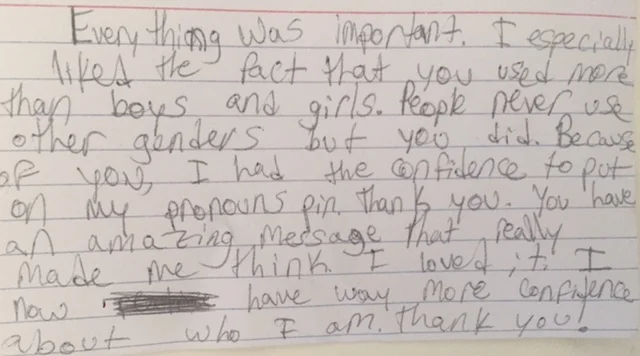 Everything was important. I especially
liked the fact that you used more
than boys and girls. People never use
other genders but you did. Because
of you, I had the confidence to put
on my pronouns pin. Thank you. You have
an amazing message that really
made me think. I loved it. I
now have way more confidence
about who I am. Thank you!